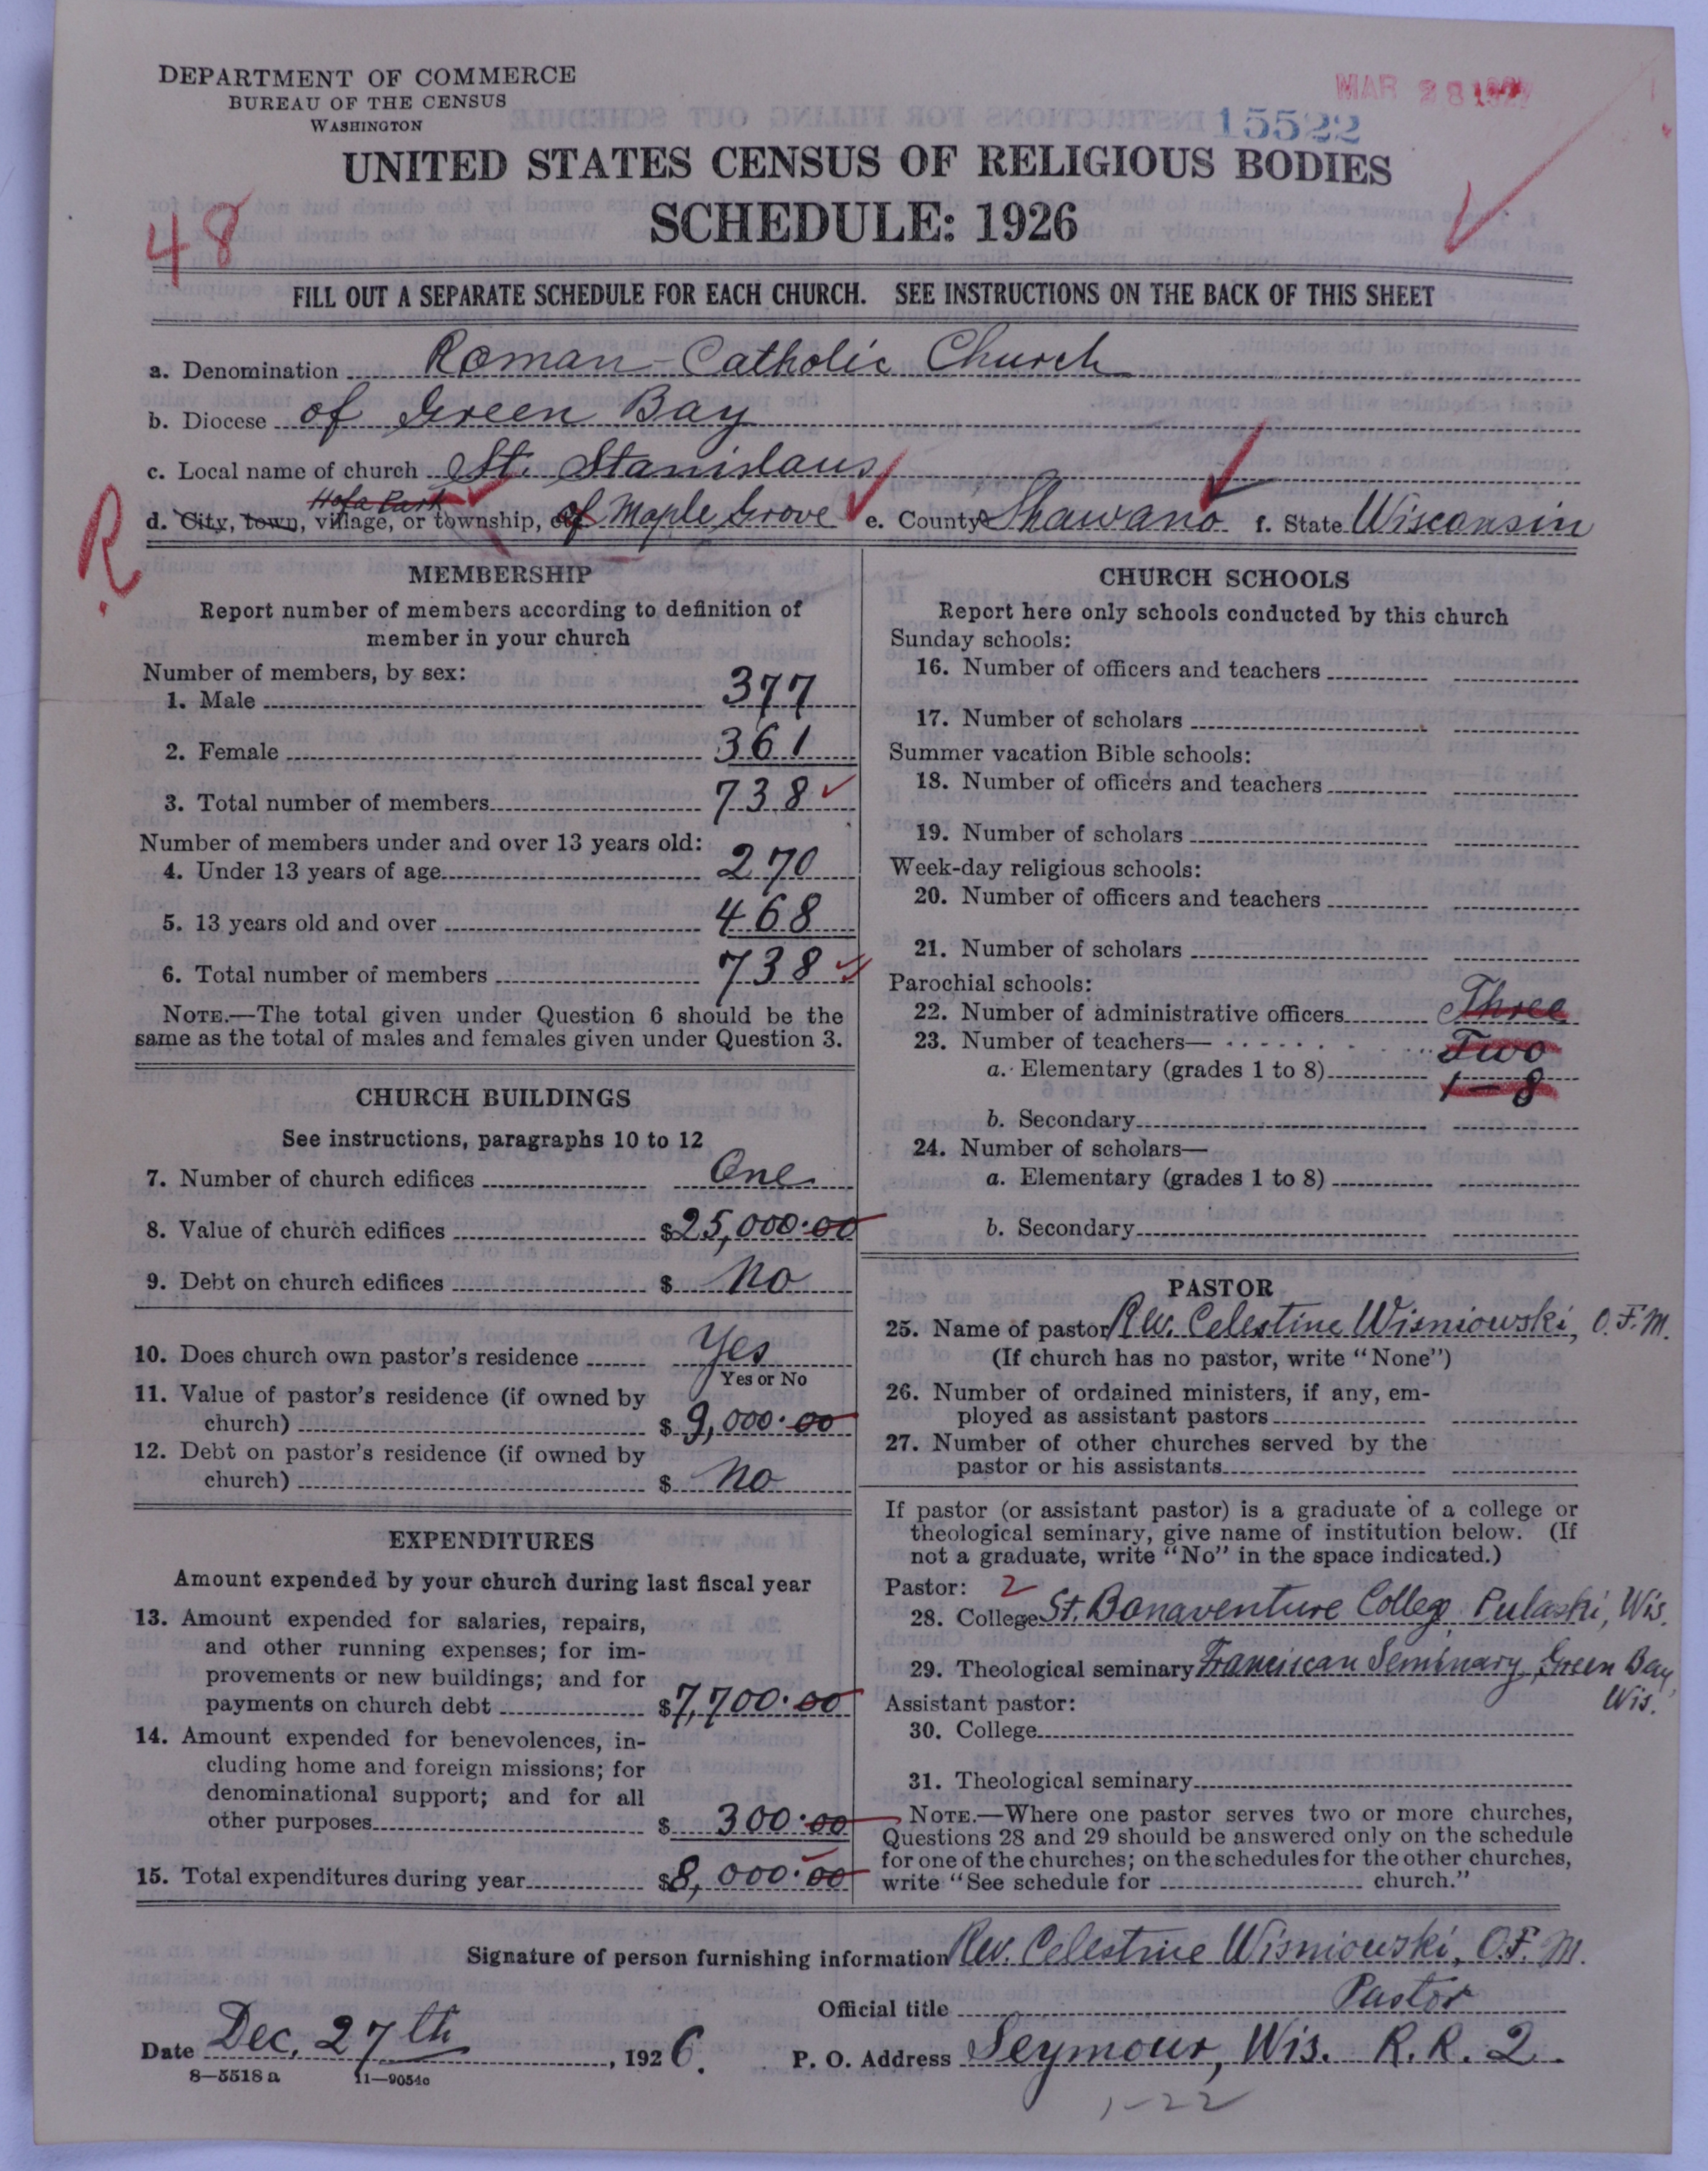 DEPARTMENT OF COMMERCE
BUREAU OF THE CENSUS
WASHINGTON
MAR 28 1927
15522
UNITED STATES CENSUS OF RELIGIOUS BODIES
SCHEDULE: 1926
48
FILL OUT A SEPARATE SCHEDULE FOR EACH CHURCH. SEE INSTRUCTIONS ON THE BACK OF THIS SHEET
a. Denomination Roman-Catholic Church
b. Diocese of Green Bay
c. Local name of church St. Stanislaus
Hofa Park
R
d. City, town, village, or township, of Maple Grove e. County Shawano f. State Wisconsin
MEMBERSHIP
Report number of members according to definition of
member in your church
Number of members, by sex:
1. Male 377
2. Female 361
3. Total number of members 738
Number of members under and over 13 years old:
4. Under 13 years of age 270
5. 13 years old and over 468
6. Total number of members 738
NOTE.—The total given under Question 6 should be the
same as the total of males and females given under Question 3.
CHURCH BUILDINGS
See instructions, paragraphs 10 to 12
7. Number of church edifices One
8. Value of church edifices $25,000.00
9. Debt on church edifices $ No
10. Does church own pastor's residence Yes
Yes or No
11. Value of pastor's residence (if owned by
church) $ 9,000.00
12. Debt on pastor's residence (if owned by
church) $ No
EXPENDITURES
Amount expended by your church during last fiscal year
13. Amount expended for salaries, repairs,
and other running expenses; for im-
provements or new buildings; and for
payments on church debt $7,700.00
14. Amount expended for benevolences, in-
cluding home and foreign missions; for
denominational support; and for all
other purposes $ 300.00
15. Total expenditures during year $8,000.00
CHURCH SCHOOLS
Report here only schools conducted by this church
Sunday schools:
16. Number of officers and teachers
17. Number of scholars
Summer vacation Bible schools:
18. Number of officers and teachers
19. Number of scholars
Week-day religious schools:
20. Number of officers and teachers
21. Number of scholars
Parochial schools:
22. Number of administrative officers Three
23. Number of teachers— Two
a. Elementary (grades 1 to 8) 1-8
b. Secondary
24. Number of scholars—
a. Elementary (grades 1 to 8)
b. Secondary
PASTOR
25. Name of pastor Rev. Celestine Wisniowski, O.F.M.
(If church has no pastor, write "None")
26. Number of ordained ministers, if any, em-
ployed as assistant pastors
27. Number of other churches served by the
pastor or his assistants
If pastor (or assistant pastor) is a graduate of a college or
theological seminary, give name of institution below. (If
not a graduate, write "No" in the space indicated.)
Pastor: 2
28. College St. Bonaventure College, Pulaski, Wis.
29. Theological seminary Franciscan Seminary, Green Bay,
Wis.
Assistant pastor:
30. College
31. Theological seminary
NOTE.—Where one pastor serves two or more churches,
Questions 28 and 29 should be answered only on the schedule
for one of the churches; on the schedules for the other churches,
write "See schedule for church."
Signature of person furnishing information Rev. Celestine Wisniowski, O.F.M.
Official title Pastor
Date Dec. 27th, 1926. P. O. Address Seymour, Wis. R.R. 2.
8—5518 a 11—9054c
1-22